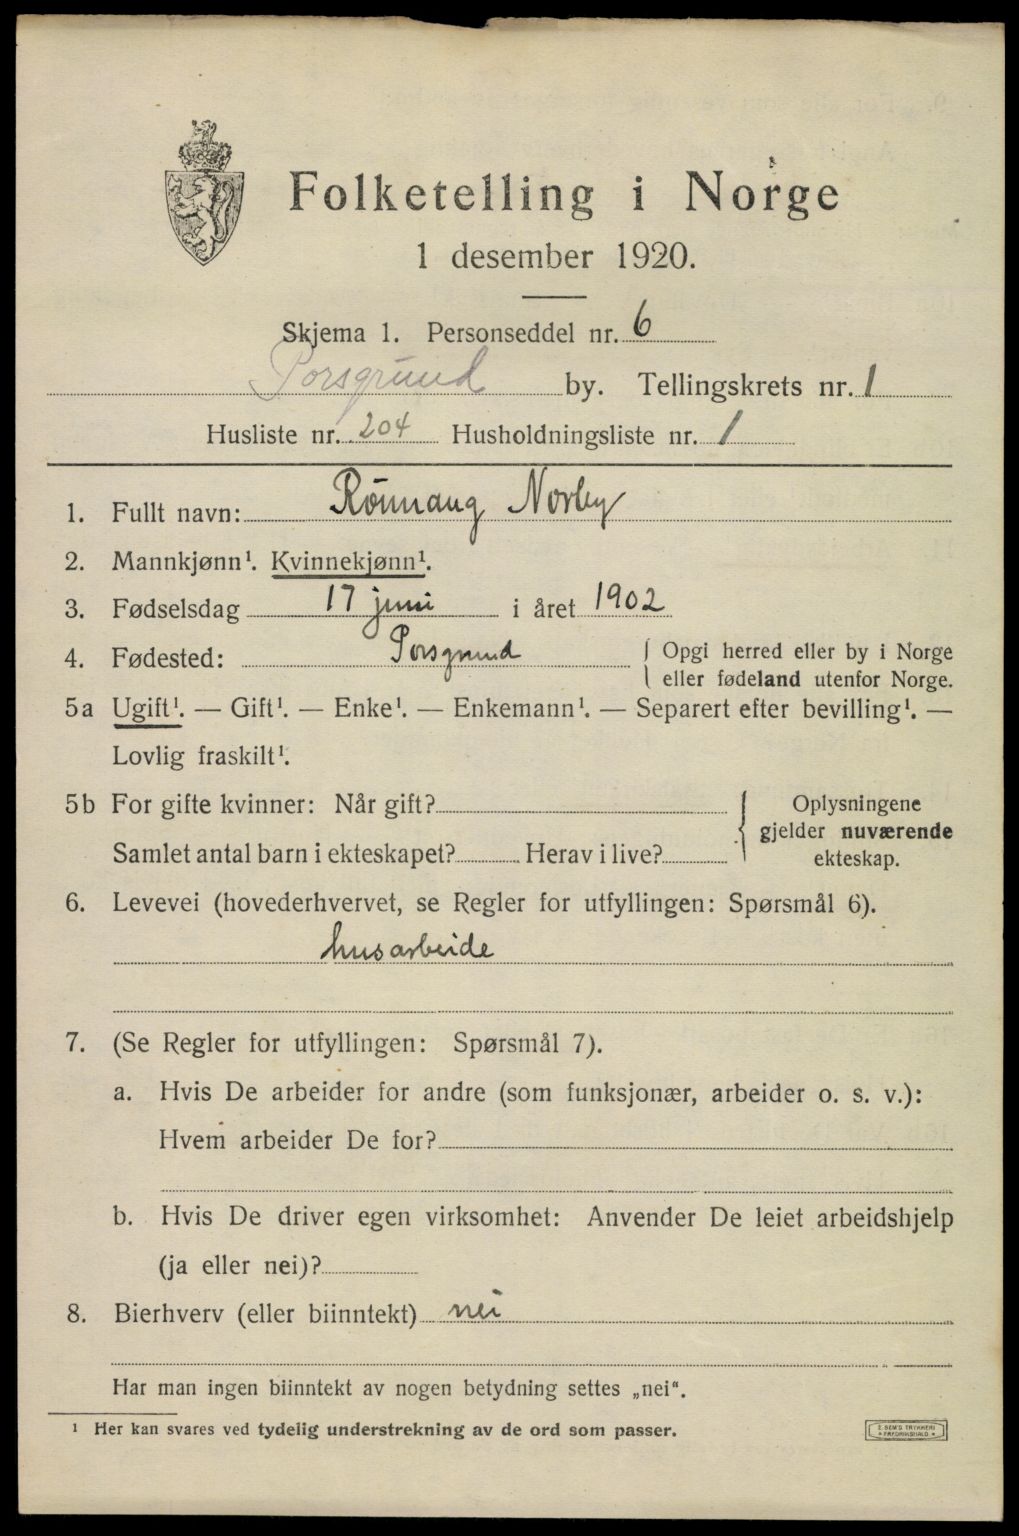 Folketelling i Norge
1 desember 1920.
Skjema 1. Personseddel nr. 6
Porsgrund by. Tellingskrets nr. 1
Husliste nr. 204 Husholdningsliste nr. 1
1. Fullt navn: Rönnaug Norby
2. Mannkjønn¹. Kvinnekjønn¹.
3. Fødselsdag 17 juni i året 1902
4. Fødested: Porsgrund { Opgi herred eller by i Norge
eller fødeland utenfor Norge.
5a Ugift¹. — Gift¹. — Enke¹. — Enkemann¹. — Separert efter bevilling¹. —
Lovlig fraskilt¹.
5b For gifte kvinner: Når gift?
Samlet antal barn i ekteskapet? Herav i live?
{ Oplysningene
gjelder nuværende
ekteskap.
6. Levevei (hovederhvervet, se Regler for utfyllingen: Spørsmål 6).
husarbeide
7. (Se Regler for utfyllingen: Spørsmål 7).
a. Hvis De arbeider for andre (som funksjonær, arbeider o. s. v.):
Hvem arbeider De for?
b. Hvis De driver egen virksomhet: Anvender De leiet arbeidshjelp
(ja eller nei)?
8. Bierhverv (eller biinntekt) nei
Har man ingen biinntekt av nogen betydning settes „nei“.
¹ Her kan svares ved tydelig understrekning av de ord som passer.
E. SEM'S TRYKKERI
FREDRIKSHALD